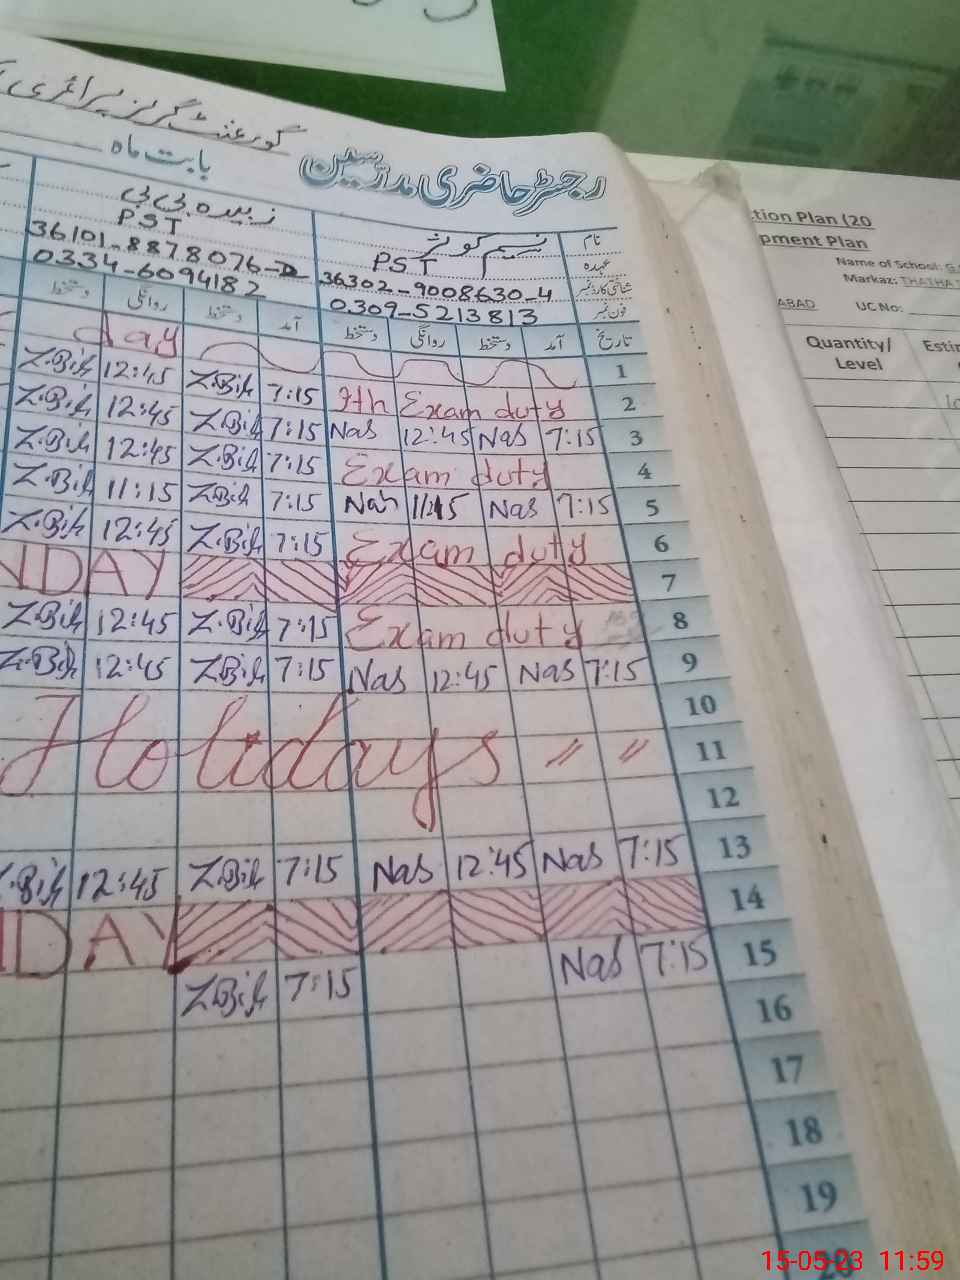 گورنمنٹ گرلز پرائمری
رجسٹر حاضری مدرسین
بابت ماہ
نام نسیم کوثر زبیدہ بی بی
عہدہ PST PST
شناختی کارڈ نمبر 36302-9008630-4 36101-8878076-D
فون نمبر 0309-5213813 0334-6094182
تاریخ آمد دستخط روانگی دستخط آمد دستخط روانگی دستخط
1 day
2 9th Exam duty 7:15 Z.Bib 12:45 Z.Bib
3 7:15 Nas 12:45 Nas 7:15 Z.Bib 12:45 Z.Bib
4 Exam duty 7:15 Z.Bib 12:45 Z.Bib
5 7:15 Nas 11:15 Nas 7:15 Z.Bib 11:15 Z.Bib
6 Exam duty 7:15 Z.Bib 12:45 Z.Bib
7 NDAY
8 Exam duty 7:15 Z.Bib 12:45 Z.Bib
9 7:15 Nas 12:45 Nas 7:15 Z.Bib 12:45 Z.Bib
10
11 Holidays 〃 〃
12
13 7:15 Nas 12:45 Nas 7:15 Z.Bib 12:45 Z.Bib
14 DAY
15 7:15 Nas 7:15 Z.Bib
16
17
18
19
20
tion Plan (20
pment Plan
Name of School: G.
Markaz: THATHA
ABAD UC No:
Quantity/ Level
Esti
15-05-23 11:59